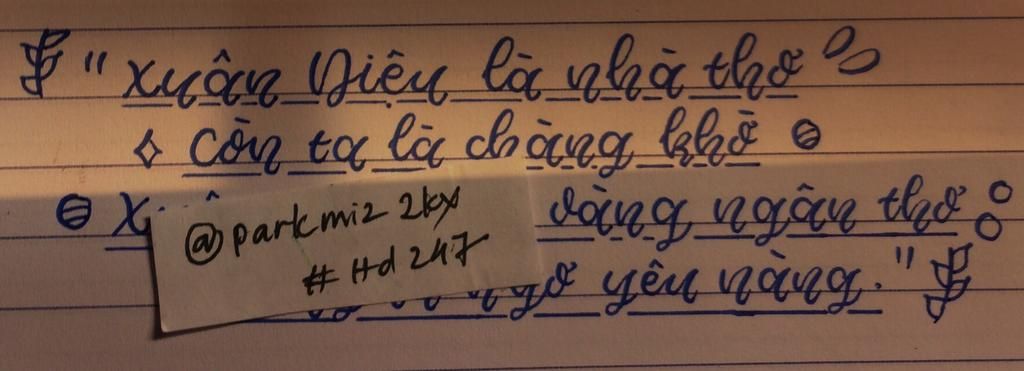 "Xuân Diệu là nhà thơ
Còn ta là chàng khờ
vàng ngân thơ
yêu nàng."
@parkmiz 2kx
#Hd 247